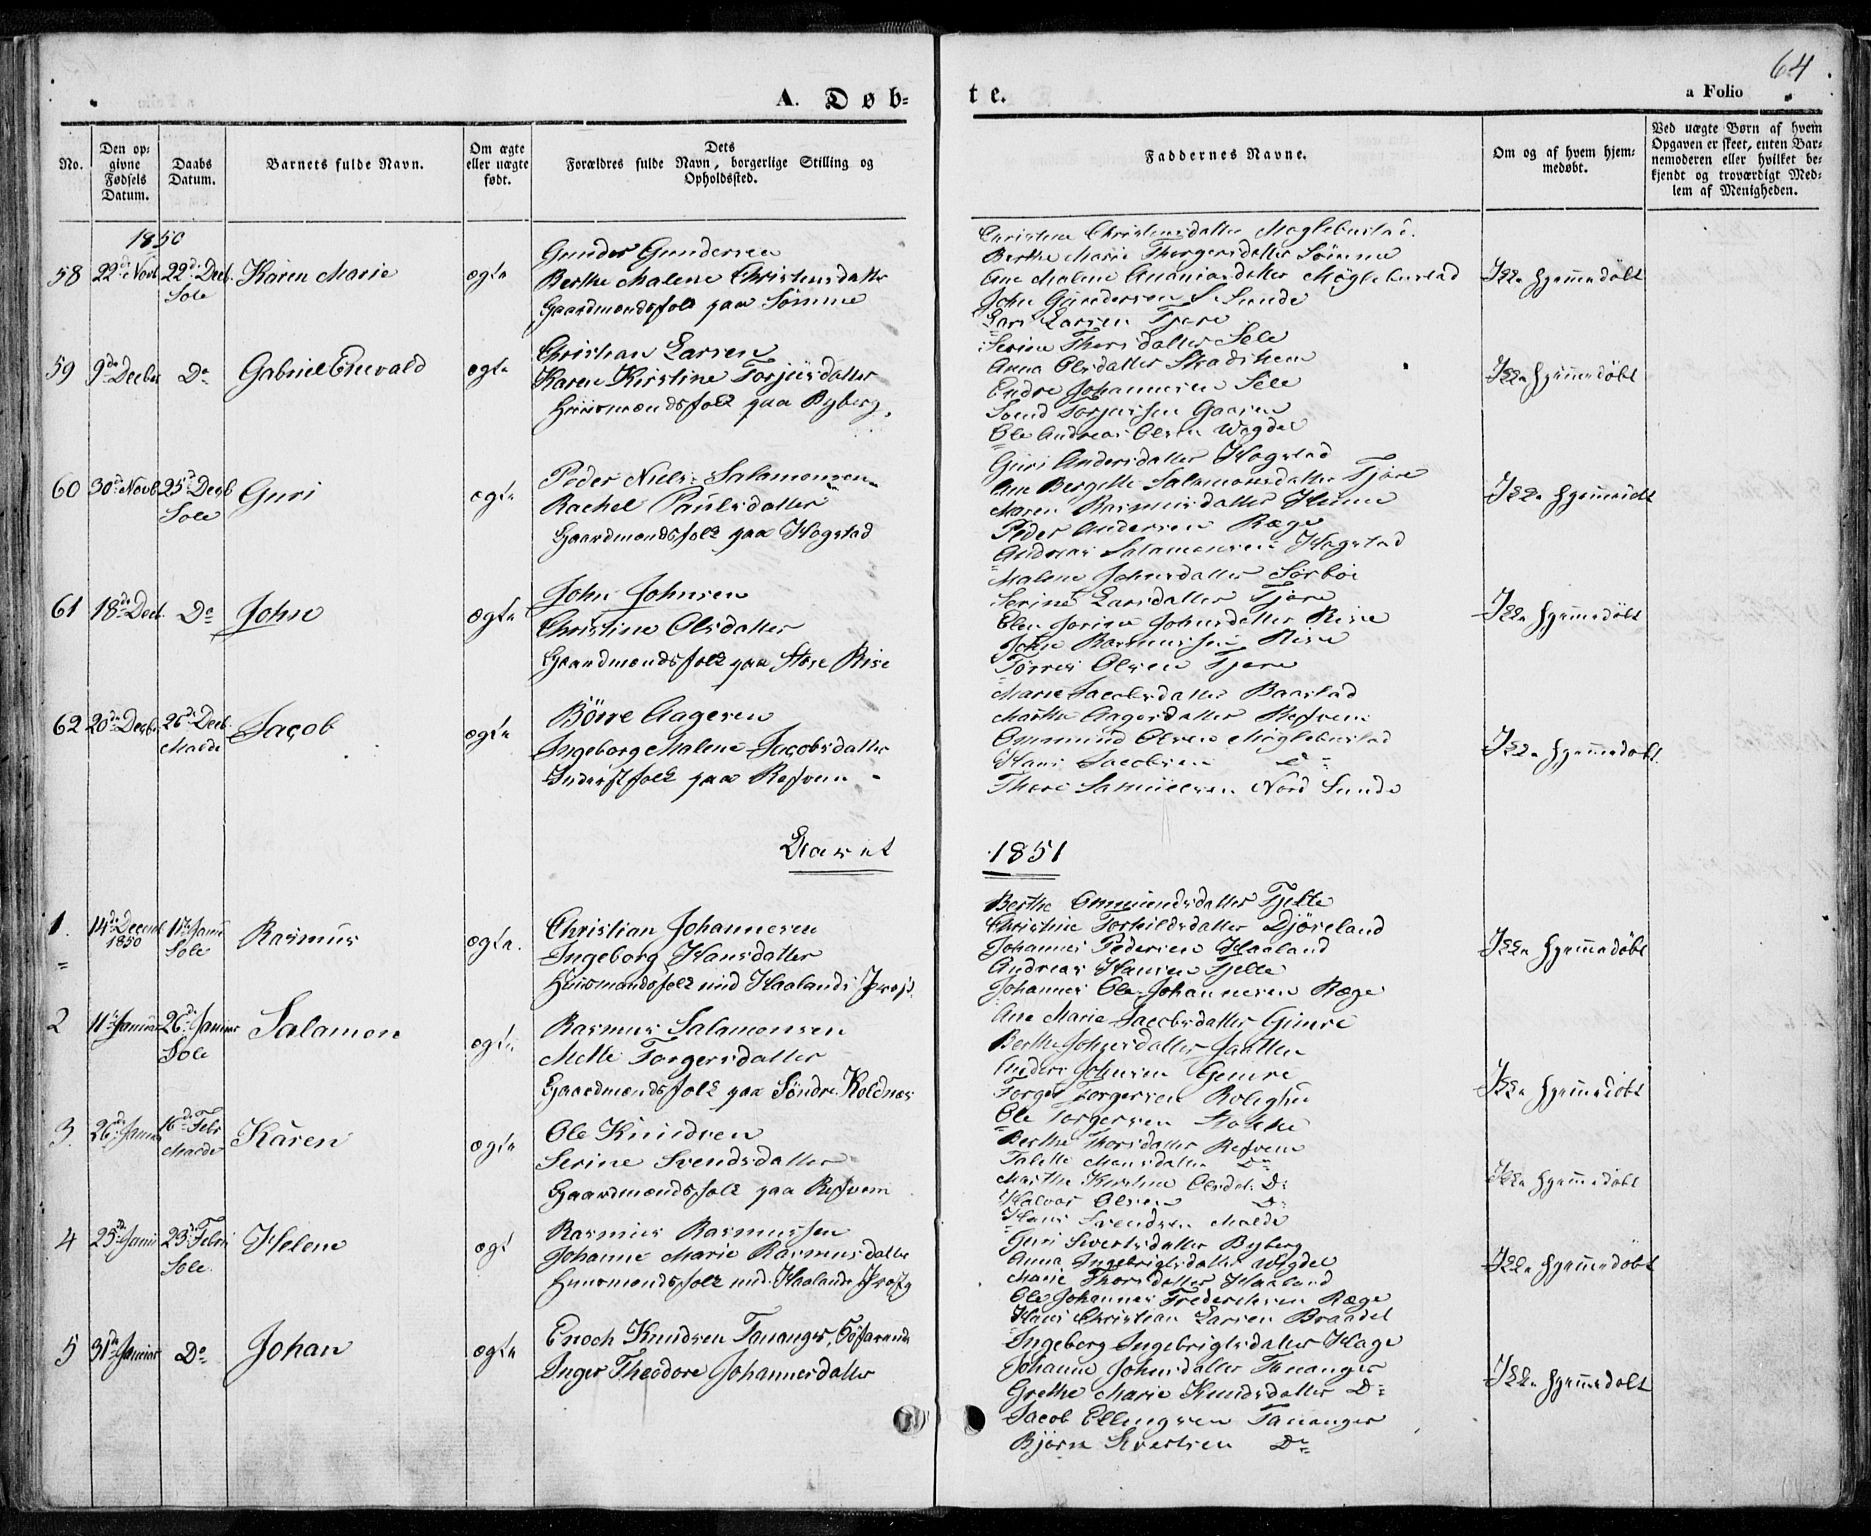 64
A. Døb-
te.
a Folio
No.
Den op-
givne
Fødsels
Datum.
Daabs
Datum.
Barnets fulde Navn.
Om ægte
eller uægte
født.
Dets
Forældres fulde Navn, borgerlige Stilling og
Opholdssted.
Faddernes Navne.
Om og af hvem hjem-
medøbt.
Ved uægte Børn af hvem
Opgaven er skeet, enten Bar-
nemoderen eller hvilket be-
kjendt og troværdigt Med-
lem af Menigheden.
1850
58 22de Novb 22de Decb. Sole
Karen Marie
ægte
Gunder Gundersen
Berthe Malene Christensdatter
Gaardmandsfolk paa Sømme
Christine Christensdatter Møglebustad
Berthe Marie Thorgersdatter Sømme
Ane Malene Ananiasdatter Møglebustad
John Gundersen S. Sunde
Lars Larsen Tjore
Ikke hjemmedøbt
59 9de Decbr Do
Gabriel Enevald
ægte
Christian Larsen
Karen Kirstine Torjusdatter
Huusmandsfolk paa Byberg
Serine Thorsdatter Sele
Anna Olsdatter Skadshem
Endre Johannesen Sele
Svend Torjussen Gaasen
Ole Andreas Olsen Wigdel
Ikke hjemmedøbt
60 30de Novb 25de Decb Sole
Guri
ægte
Peder Niels Salamonsen
Rachel Paulsdatter
Gaardmandsfolk paa Hogstad
Guri Andersdatter Hogstad
Ane Bergitte Salamonsdatter Tjore
Maren Rasmusdatter
Peder Andersen Ræge
Andreas Salamonsen Hogstad
Ikke hjemmedøbt
61 18de Decb. Do
John
ægte
John Johnsen
Christine Olsdatter
Gaardmandsfolk paa Store Risa
Malene Johnsdatter Sørboe
Serine Larsdatter Tjore
Elen Jorine Johnsdatter Risa
John Rasmussen Risa
Tørres Olsen Tjore
Ikke hjemmedøbt
62 20de Decbr 26de Decb. Malde
Jacob
ægte
Børre Aagesen
Ingeborg Malene Jacobsdatter
Inderstfolk paa Resvem
Marie Jacobsdatter Baastad
Marthe Aagesdatter Resvem
Ommund Olsen Møglebustad
Hans Jacobsen Do
Thore Samuelsen Nord Sunde
Ikke hjemmedøbt
Aaret
1851
1. 14de Decemb 1850 Sole
Rasmus
ægte
Christian Johannesen
Ingeborg Hansdatter
Huusmandsfolk und. Haalands Prestg
Berthe Ommundsdatter Tjelte
Christine Torkildsdatter Djøseland
Johannes Pedersen Haaland
Andreas Hansen Tjelte
Johannes Ole Johannesen Ræge
Ikke hjemmedøbt
2 11te Januar 26de Januar Sole
Salamon
ægte
Rasmus Salamonsen
Mette Torgersdatter
Gaardmandsfolk paa Søndre Koldnæs
Ane Marie Jacobsdatter Gimre
Berthe Johnsdatter Jaatten
Anders Johnsen Gimre
Torger Torgersen Rolighe
Ole Torgersen
Ikke hjemmedøbt
3. 26de Januar 16de Febr Malde
Karen
ægte
Ole Knudsen
Serine Svendsdatter
Gaardmandsfolk paa Resvem
Berthe Thorsdatter Resvem
Tabitte Monsdatter Do
Marthe Kirstine Olsdat. Do
Halvor Olsen Do
Hans Svendsen Malde
Ikke hjemmedøbt
4 25de Janu 23de Febr Sole
Helene
ægt
Rasmus Rasmussen
Johanne Marie Rasmusdatter
Huusmandsfolk und. Haalands Prestg
Guri Sivertsdatter Byberg
Anna Ingebrigtsdatter Wigdel
Marie Thorsdatter Haaland
Ole Johannes Fredericksen Ræge
Hans Christian Larsen Braadel
Ikke hjemmedøbt
5 31te Januar Do
Johan
ægte
Enoch Knudsen Tananger, Søfarende
Inger Theodore Johannesdatter
Ingeborg Ingebrigtsdatter Hage
Johanne Johnsdatter Tananger
Grethe Marie Knudsdatter Do
Jacob Ellingsen Tananger
Bjørn Sivertsen Do
Ikke hjemmedøbt